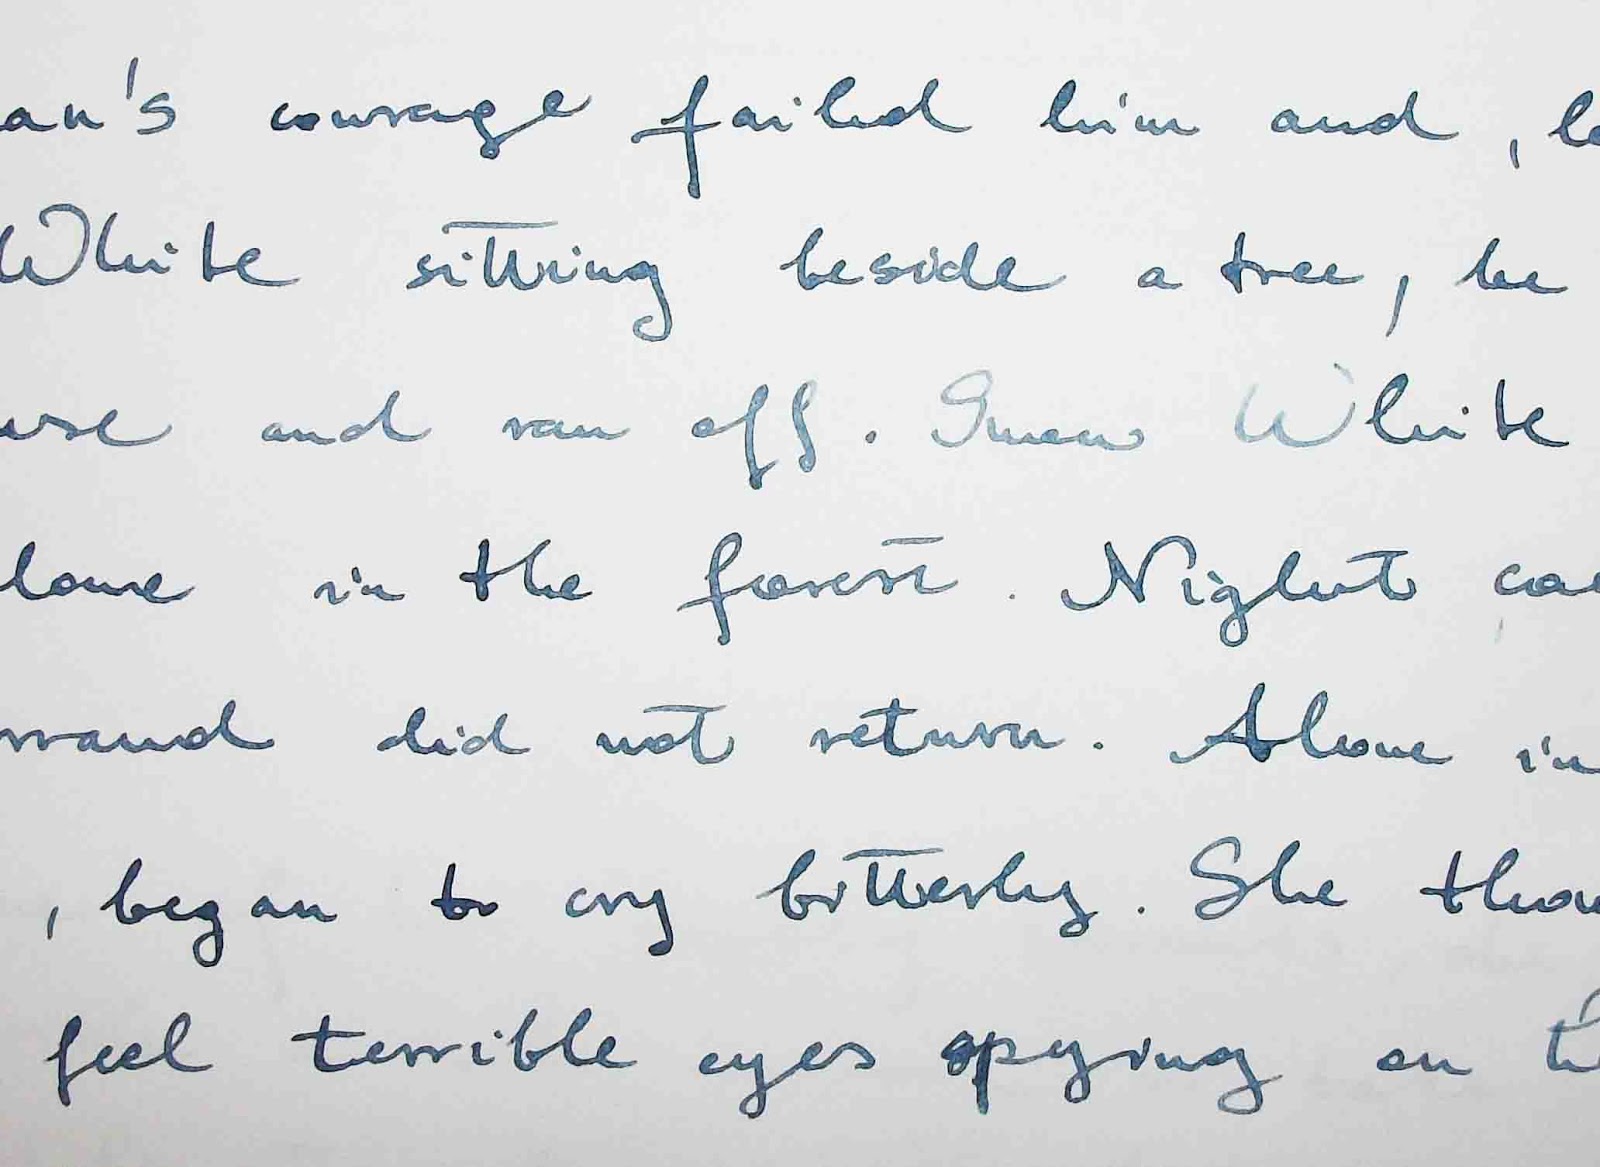 an's courage failed him and, le
White sitting beside a tree, he
use and ran off. Snow White
lone in the forest. Night ca
rrand did not return. Alone in
, began to cry bitterly. She thou
feel terrible eyes spying on h